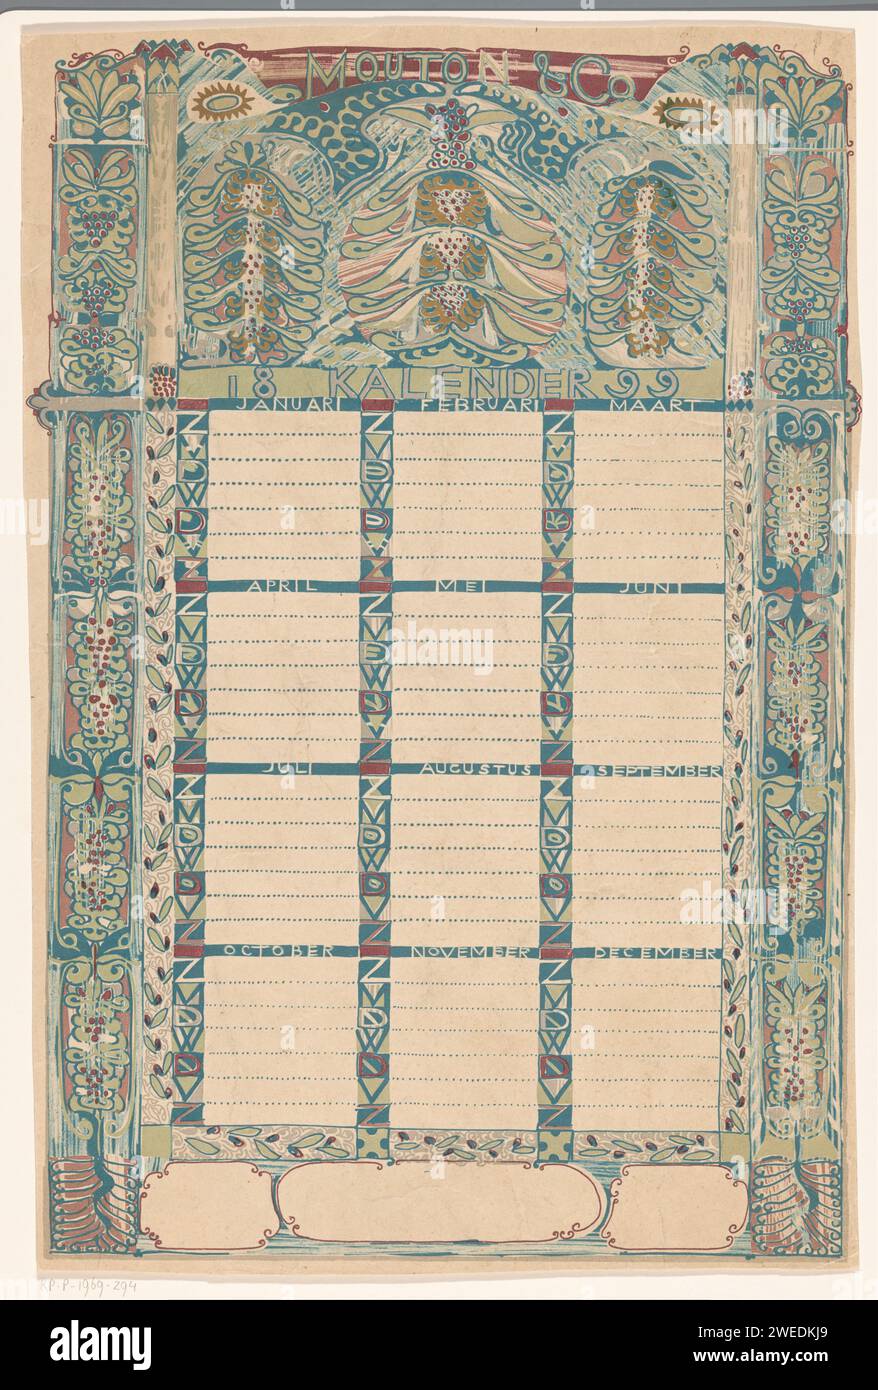 MOUTON & Co
18 KALENDER 99
JANUARI FEBRUARI MAART
Z Z Z
M M M
D D D
W W W
D D D
V V V
Z Z Z
APRIL MEI JUNI
Z Z Z
M M M
D D D
W W W
D D D
V V V
Z Z Z
JULI AUGUSTUS SEPTEMBER
Z Z Z
M M M
D D D
W W W
D D D
V V V
Z Z Z
OCTOBER NOVEMBER DECEMBER
Z Z Z
M M M
D D D
W W W
D D D
V V V
Z Z Z
RP-P-1969-294
alamy
Image ID: 2WEDKJ9
www.alamy.com